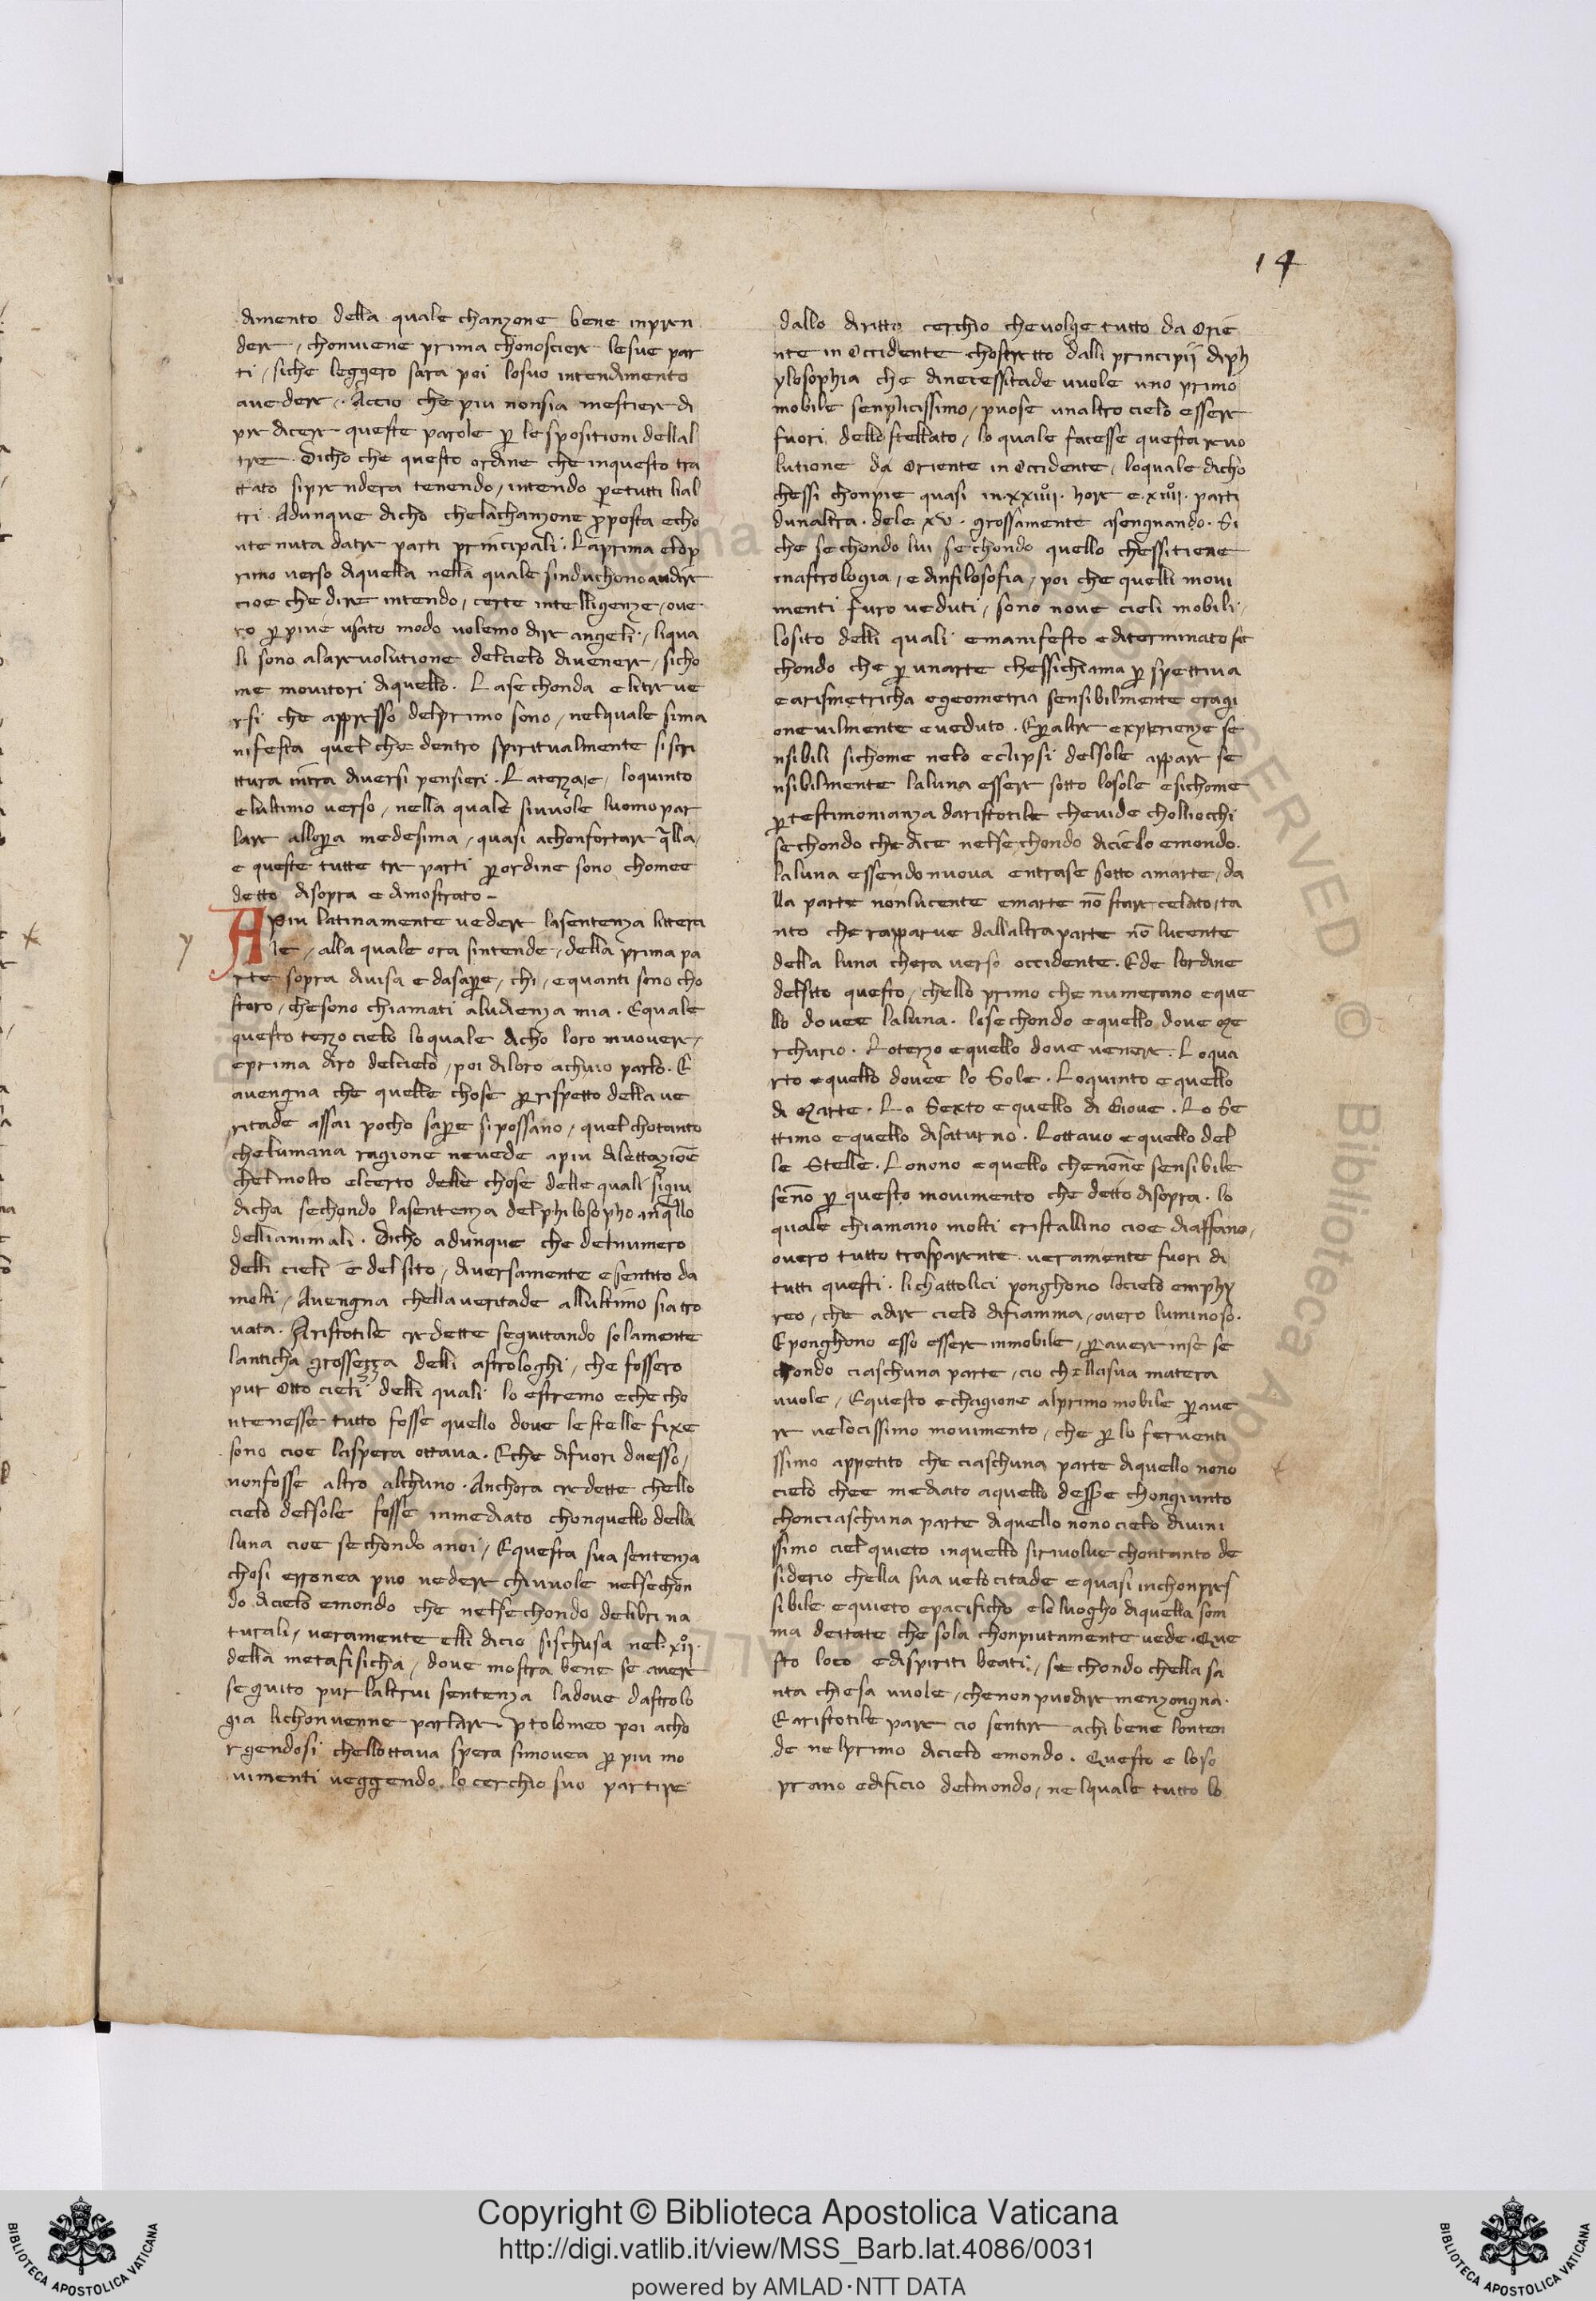 14
dimento della quale chanzone bene inpren
dere / chonviene prima chonosciere lesue par
ti / siche leggero sara poi losuo intendimento
avedere /. Accio che piu nonsia mestiere di
predicere queste parole p̲ lespositioni dellal
tre. Dicho che questo ordine che inquesto tra
ttato siprendera tenendo / intendo p̲tutti lial
tri. Adunque dicho chelachanzone p̲posta echo
ntenuta datre parti principali. Laprima
rimo verso diquella nella quale sinduchono audire
cioe che dire intendo / certe intelligenze / ove
ro p̲ piue usato modo volemo dire angeli / liqua
li sono alarevolutione delcielo divenere / sicho
me movitori diquello. Lasechonda elitre ve
rsi che appresso delprimo sono / nelquale sima
nifesta quel che dentro spiritualmente siscri
ttura intra diversi pensieri. Laterza e / loquinto
elultimo verso / nella quale sivuole luomo par
lare allop̲a medesima / quasi achonfortare q̄lla /
e queste tutte tre parti p̲ordine sono chomee
detto disopra e dimostrato –
Apiu latinamente vedere lasentenza littera
le / alla quale ora sintende / della prima pa
rte sopra divisa e dasap̲e / chi / equanti sono cho
storo / chesono chiamati aludienza mia. Equale
questo terzo cielo loquale dicho loro muovere /
eprima diro delcielo / poi diloro achuio parlo. E
avengna che quelle chose p̲ rispetto della ve
ritade assai pocho sap̲e sipossano / quel chotanto
chelumana ragione nevede apiu dilettazioē
chel molto elcerto delle chose delle quali sigiu
dicha sechondo lasentenza delphilosopho inq̄llo
dellianimali. Dicho adunque che delnumero
delli cieli e del sito / diversamente esentito da
molti / Avengna chellaveritade allultimo siatro
vata. Aristotile credette seguitando solamente
lanticha grossezza delli astrologhi / che fossero
pur otto cieli delli quali lo estremo eche cho
ntenesse tutto fosse quello dove lestelle fixe
sono cioe laspera ottava. Eche difuori daesso /
nonfosse altro alchuno. Anchora credette chello
cielo delsole fosse inmediato chonquello della
luna cioe sechondo anoi / Equesta sua sentenza
chosi erronea puo vedere chivuole nelsechon
do dicielo emondo che nelsechondo delibri na
turali / veramente elli dicio sischusa nel. xij.
della metafisicha / dove mostra bene se avere
seguito pur laltrui sentenza ladove dastrolo
gia lichonvenne parlare. ptolomeo poi acho
rgendosi chellottava spera simovea p̲ piu mo
vimenti veggendo lo cerchio suo partire
dallo diritto cerchio chevolge tutto da Orie
nte in Occidente chostretto dalli principij diph
ylosophia che dinecessitade vuole uno primo
mobile senplicissimo / puose unaltro cielo essere
fuori dello stellato / lo quale facesse questa revo
lutione da Oriente in Occidente / loquale dicho
chessi chonpie quasi in. xxiiij. hore e. xiiij. parti
dunaltra. dele xv. grossamente asengnando. Si
che sechondo lui sechondo quello chessitiene
inastrologia / e dinfilosofia / poi che quelli movi
menti furo veduti / sono nove cieli mobili /
losito delli quali emanifesto editerminato se
chondo che p̲ unarte chessichiama p̲spettiva
earismetricha egeometria sensibilmente eragi
onevilmente eveduto. Ep̲altre experienze se
nsibili sichome nelo eclipsi delsole appare se
nsibilmente laluna essere sotto losole esichome
p̲ testimonianza daristotile chevide cholliocchi
sechondo chedice nelsechondo dicielo emondo.
laluna essendo nuova entrase sotto amarte / da
lla parte nonlucente emarte nō stare celato / ta
nto che rapparve dallaltra parte nō lucente
della luna chera verso occidente. Ede lordine
delsito questo / chello primo che numerano eque
llo dovee laluna. losechondo equello dove Me
rchurio. Loterzo equello dove venere. Loqua
rto equello dovee lo Sole. Loquinto equello
di Marte. Lo Sexto equello di Giove. Lo Se
ttimo equello disaturno. Lottavo equello del
le Stelle. Lonono equello chenonne sensibile
senō p̲ questo movimento che detto disopra. lo
quale chiamano molti cristallino cioe diaffano /
overo tutto trasparente. veramente fuori di
tutti questi. lichattolici ponghono locielo emphy
reo / che adire cielo difiamma / overo luminoso.
Eponghono esso essere inmobile / p̲avere inse se
chondo ciaschuna parte / cio chellasua matera
vuole / Equesto echagione alprimo mobile p̲ave
re velocissimo movimento / che p̲ lo ferventi
ssimo appetito che ciaschuna parte diquello nono
cielo chee mediato aquello dess̲e chongiunto
chonciaschuna parte diquello nono cielo divini
ssimo ciel quieto inquello sirivolve chontanto de
siderio chella sua velocitade equasi inchonpres
sibile equieto epacificho elo luogho diquella som
ma deitate che sola chonpiutamente vede. Que
sto loco edispiriti beati / sechondo chella sa
nta chiesa vuole / chenon puodire menzongna.
Earistotile pare cio sentire achi bene lonten
de nelprimo dicielo emondo. Questo e loso
prano edificio delmondo / nelquale tutto lo
Copyright © Biblioteca Apostolica Vaticana
http://digi.vatlib.it/view/MSS_Barb.lat.4086/0031
powered by AMLAD·NTT DATA
BIBLIOTECA APOSTOLICA VATICANA
BIBLIOTECA APOSTOLICA VATICANA